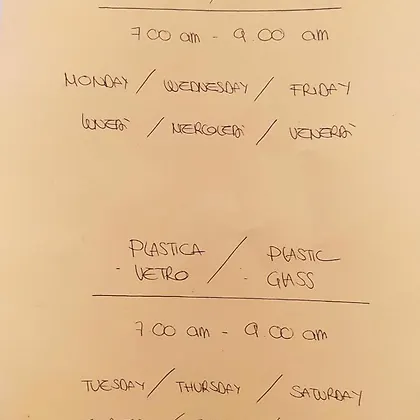 7 00 am - 9.00 am
MONDAY / WEDNESDAY / FRIDAY
LUNEDì / MERCOLEDì / VENERDì
PLASTICA / PLASTIC
- VETRO - GLASS
7 00 am - 9.00 am
TUESDAY / THURSDAY / SATURDAY